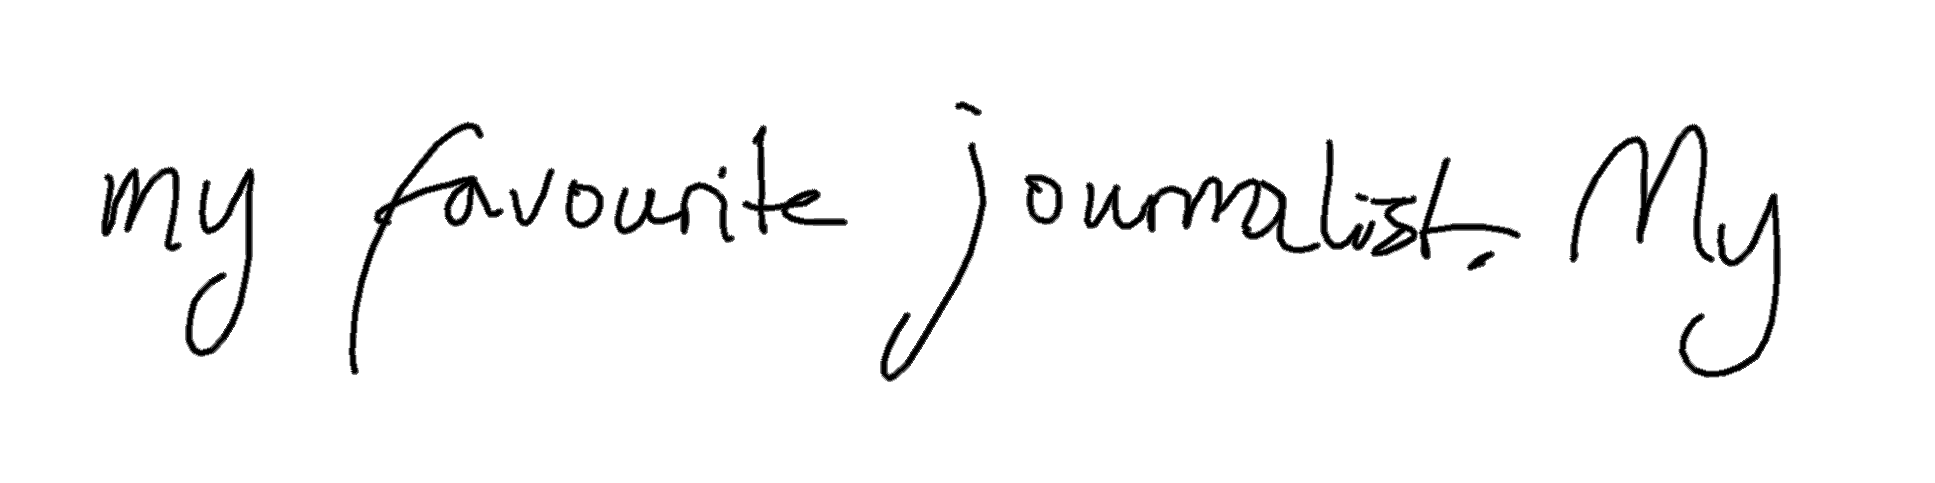 my favourite journalist. My